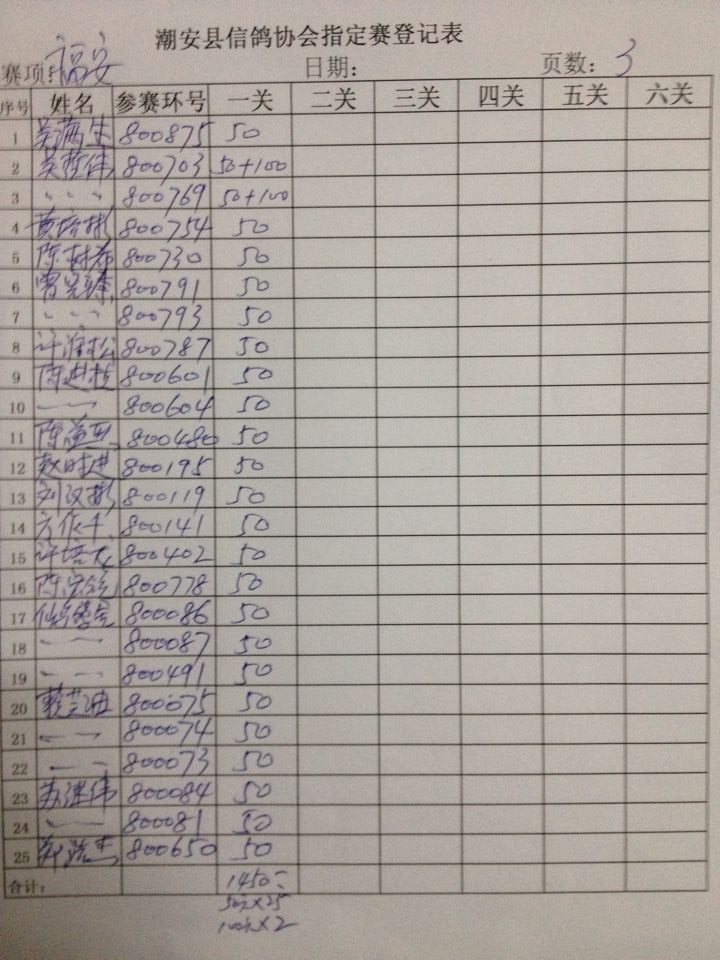 潮安县信鸽协会指定赛登记表
赛项:福安 日期: 页数: 3
序号 姓名 参赛环号 一关 二关 三关 四关 五关 六关
1 吴满生 800875 50
2 吴哲伟 800703 50+100
3 〃 〃 〃 800769 50+100
4 黄 彬 800754 50
5 陈树希 800730 50
6 曾 800791 50
7 〃 〃 〃 800793 50
8 许 松 800787 50
9 陈进 800601 50
10 〃 800604 50
11 陈 800480 50
12 赵时进 800195 50
13 刘汉彬 800119 50
14 方 800141 50
15 许培 800402 50
16 陈 800778 50
17 800086 50
18 〃 〃 800087 50
19 〃 〃 800491 50
20 800075 50
21 〃 〃 800074 50
22 〃 〃 800073 50
23 苏继伟 800084 50
24 〃 800081 50
25 郑 杰 800650 50
合计: 1450-
50元×25
100元×2